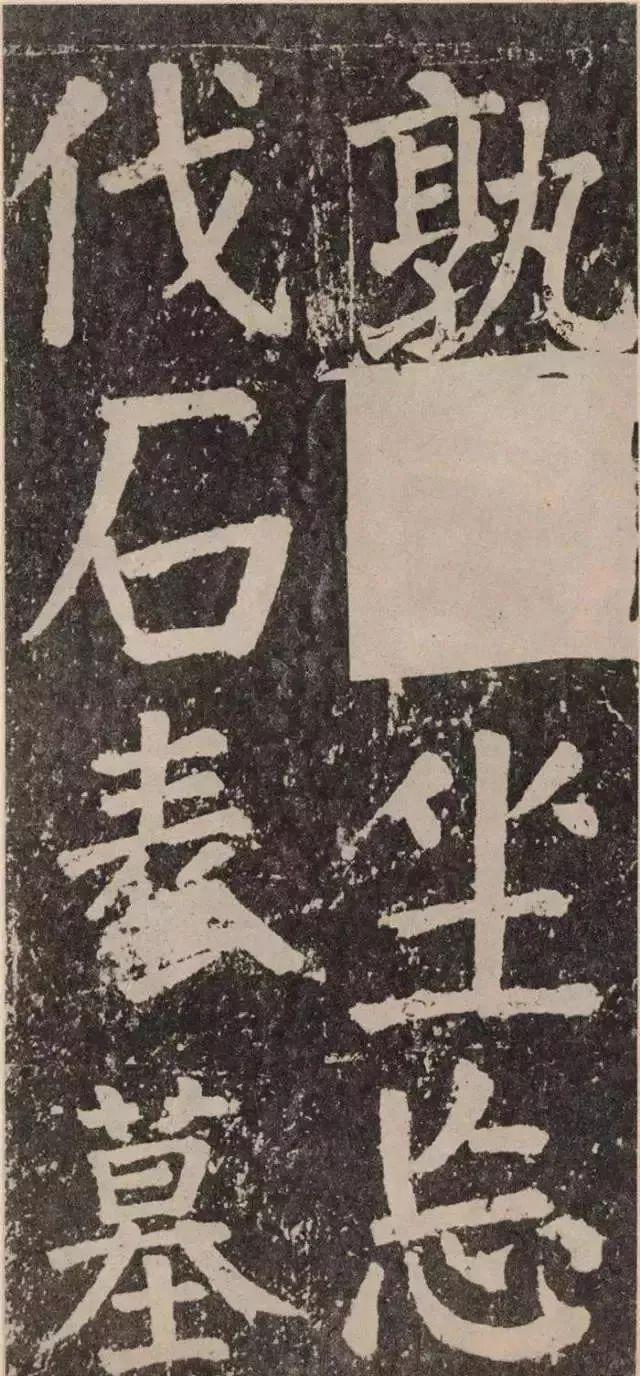 孰□坐忘
伐石表墓